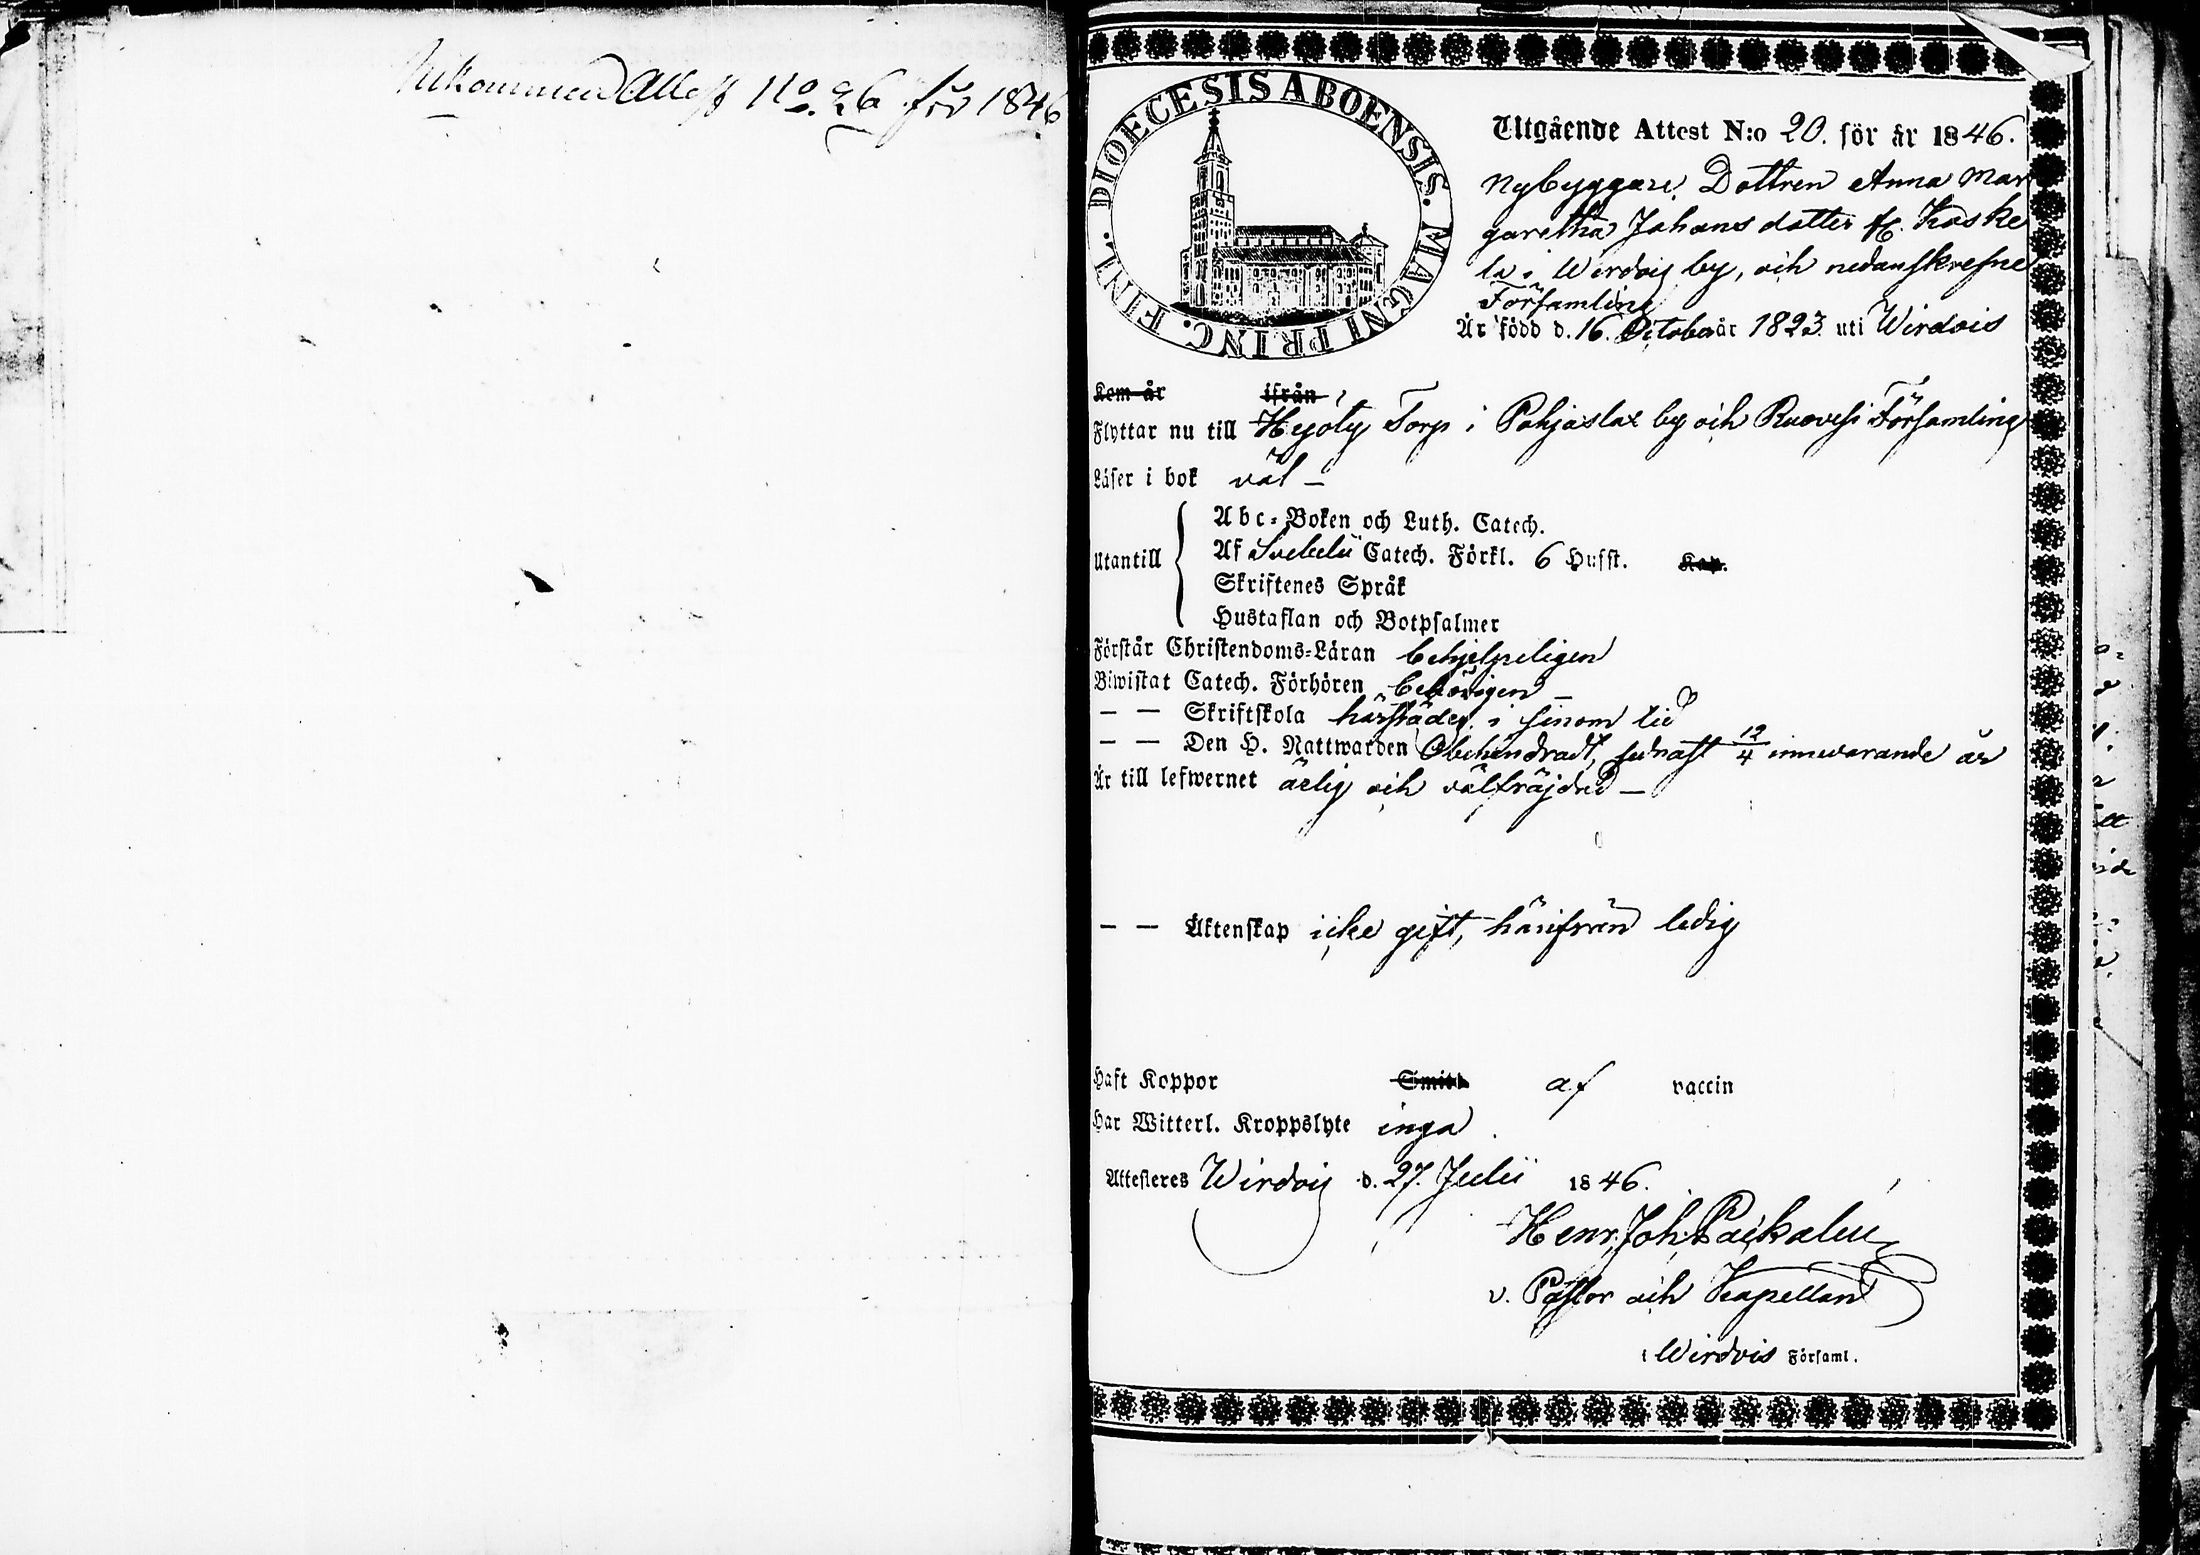 Inkommen Attest No 26 för 1846
DIOECESIS ABOENSIS. MAGNI PRINC. FINL.
Utgående Attest N:o 20. för år 1846.
Nybyggare Dottren Anna Mar
garetha Johansdotter fr. Koske
la i Wirdois by, och nedanskrefne
Församling
Är född d. 16. October år 1823. uti Wirdois
Kom år ifrån
Flyttar nu till Torp i Pohjaslax by och Ruovesi Församling
Läser i bok väl –
Abc-Boken och Luth. Catech.
Utantill Af Svebelii Catech. Förkl. 6 Hufst. Kap.
Skriftenes Språk
Hustaflan och Botpsalmer
Förstår Christendoms-Läran behjelpeligen
Biwistat Catech. Förhören behörigen –
– – Skriftskola härstädes i sinom tid
– – Den H. Nattwarden Obehindradt, sednast 12/4 innevarande år
Är till lefwernet ärlig och välfräjdad –
– – Äktenskap icke gift, härifrån ledig
Haft Koppor Smitt. af vaccin
Har Witterl. Kroppslyte inga.
Attesteres Wirdois d. 27. Julii 1846.
Henr. Joh.
v. Pastor och Kapellan
i Wirdois Församl.